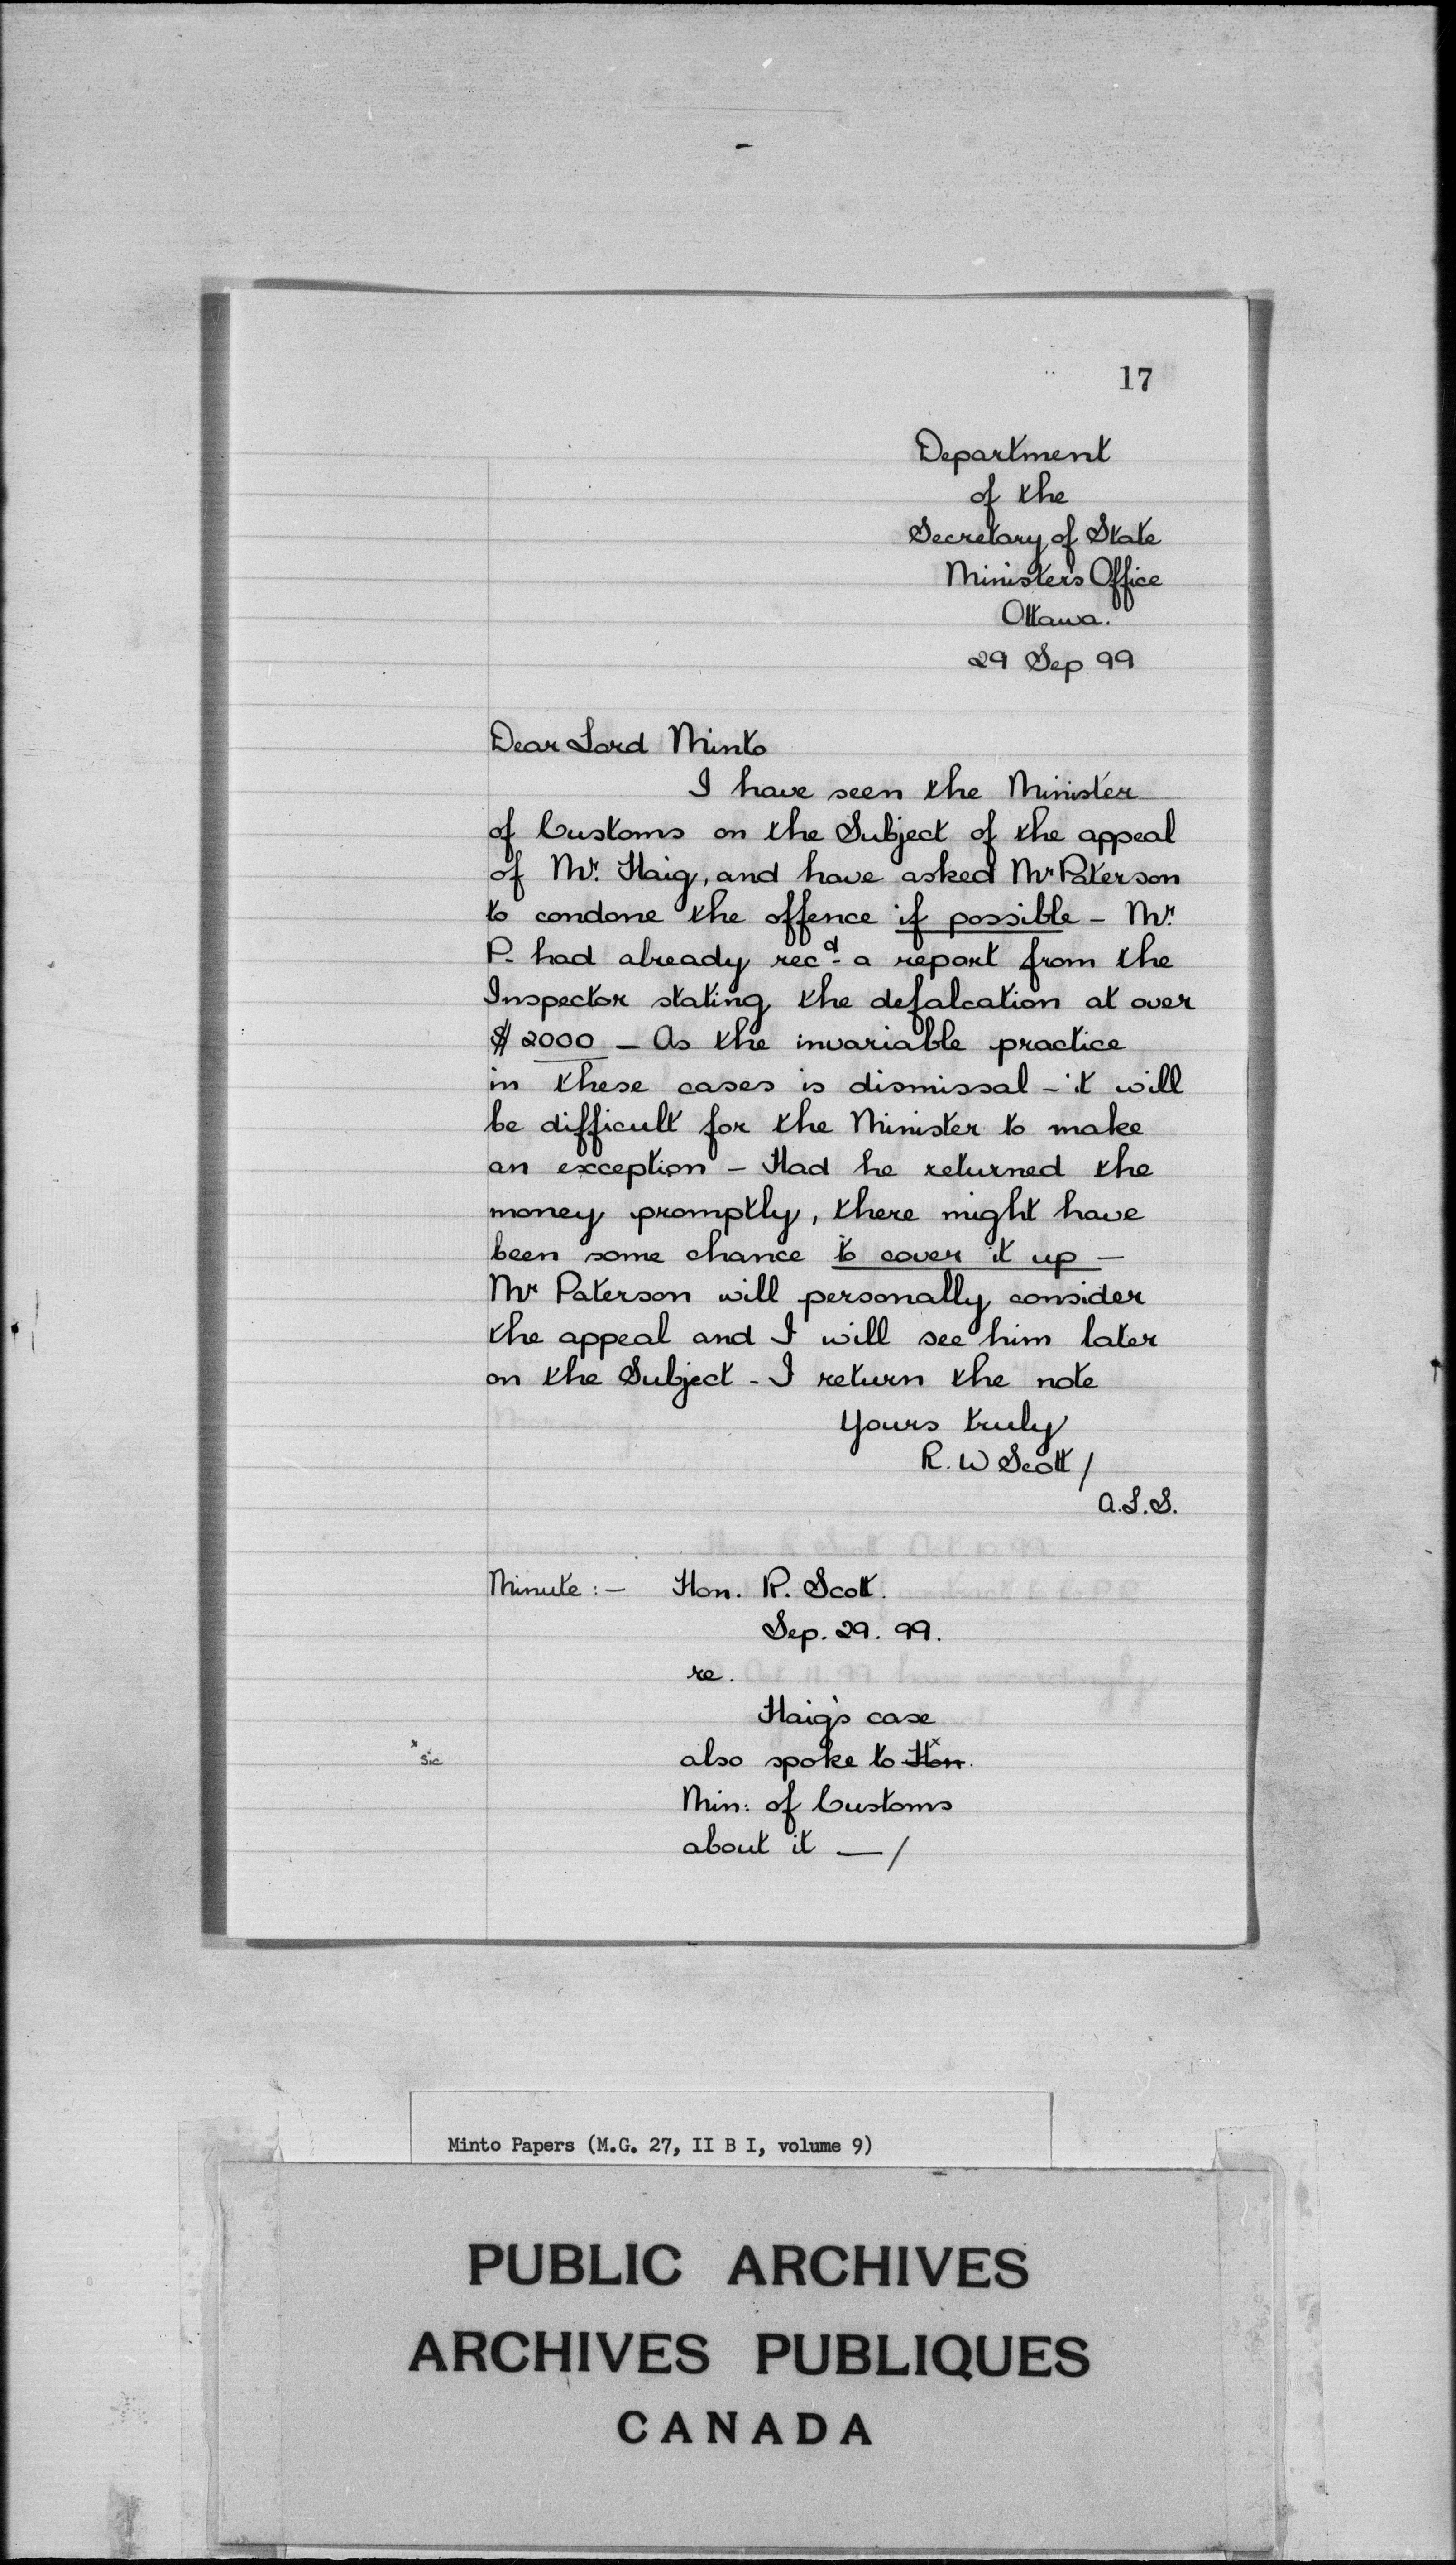 17
Department
of the
Secretary of State
Minister's Office
Ottawa.
29 Sep 99
Dear Lord Minto
I have seen the Minister
of Customs on the Subject of the appeal
of Mr. Haig, and have asked Mr Paterson
to condone the offence if possible - Mr.
P. had already recd. a report from the
Inspector stating the defalcation at over
$2000 - As the invariable practice
in these cases is dismissal - it will
be difficult for the Minister to make
an exception - Had he returned the
money promptly, there might have
been some chance to cover it up -
Mr Paterson will personally consider
the appeal and I will see him later
on the Subject - I return the note
Yours truly
R. W Scott /
A.L.S.
Minute :- Hon. R. Scott.
Sep. 29. 99.
re.
Haig's case
x sic also spoke to Hon x.
Min: of Customs
about it - /
Minto Papers (M.G. 27, II B I, volume 9)
PUBLIC ARCHIVES
ARCHIVES PUBLIQUES
CANADA